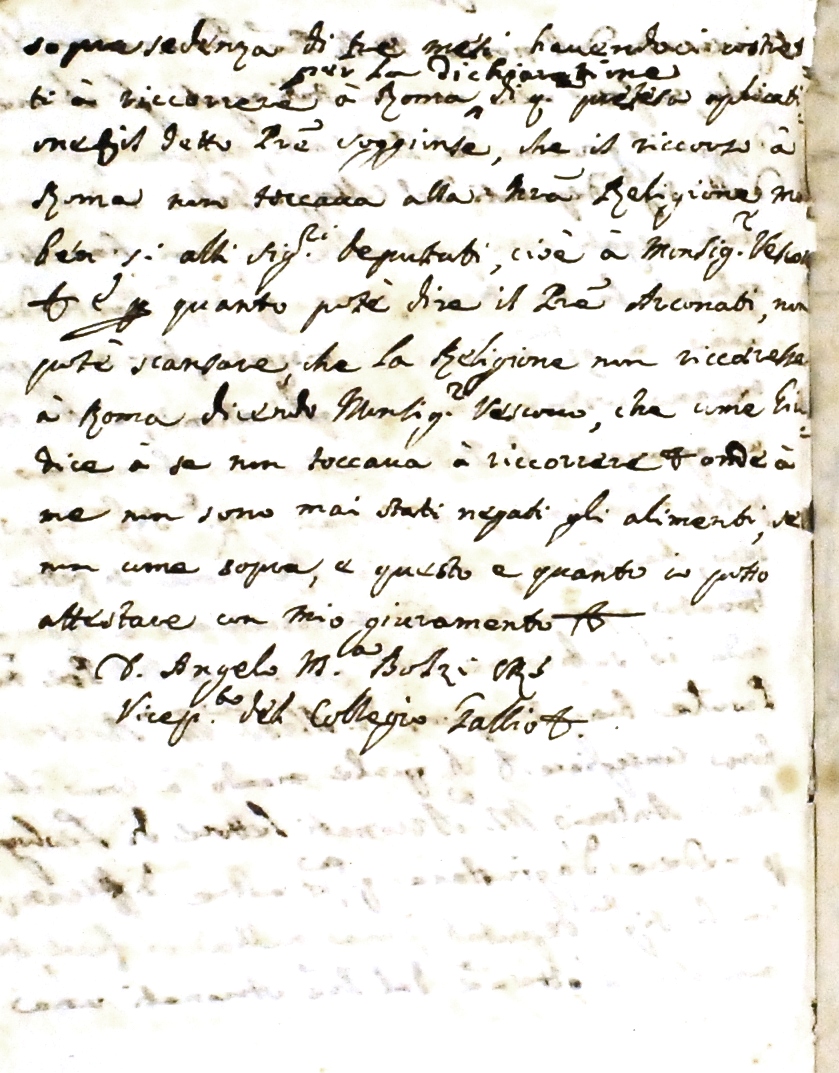 soprasedenza di tre mesi havendoci costret
per la dichiaratione
ti à riccorrere à Roma di q.ª pretesa aplicati
one il detto Prē soggiunse, che il riccorso à
Roma non toccava alla Nrã Religione ma
ben si alli Sig.ri deputati, cioè à Monsig.r Vescou
quanto potè dire il Prē Arconati, non
potè scansare, che la Religione non riccorresse
à Roma dicendo Monsig.r Vescouo, che come Giu
dice à se non toccaua à riccorrere onde à
me non sono mai stati negati gli alimenti, se
non come sopra, e questo e quanto io posso
attestare con mio giuramento
D. Angelo M.a Bolzi CRS
Vicep.to del Collegio Gallio